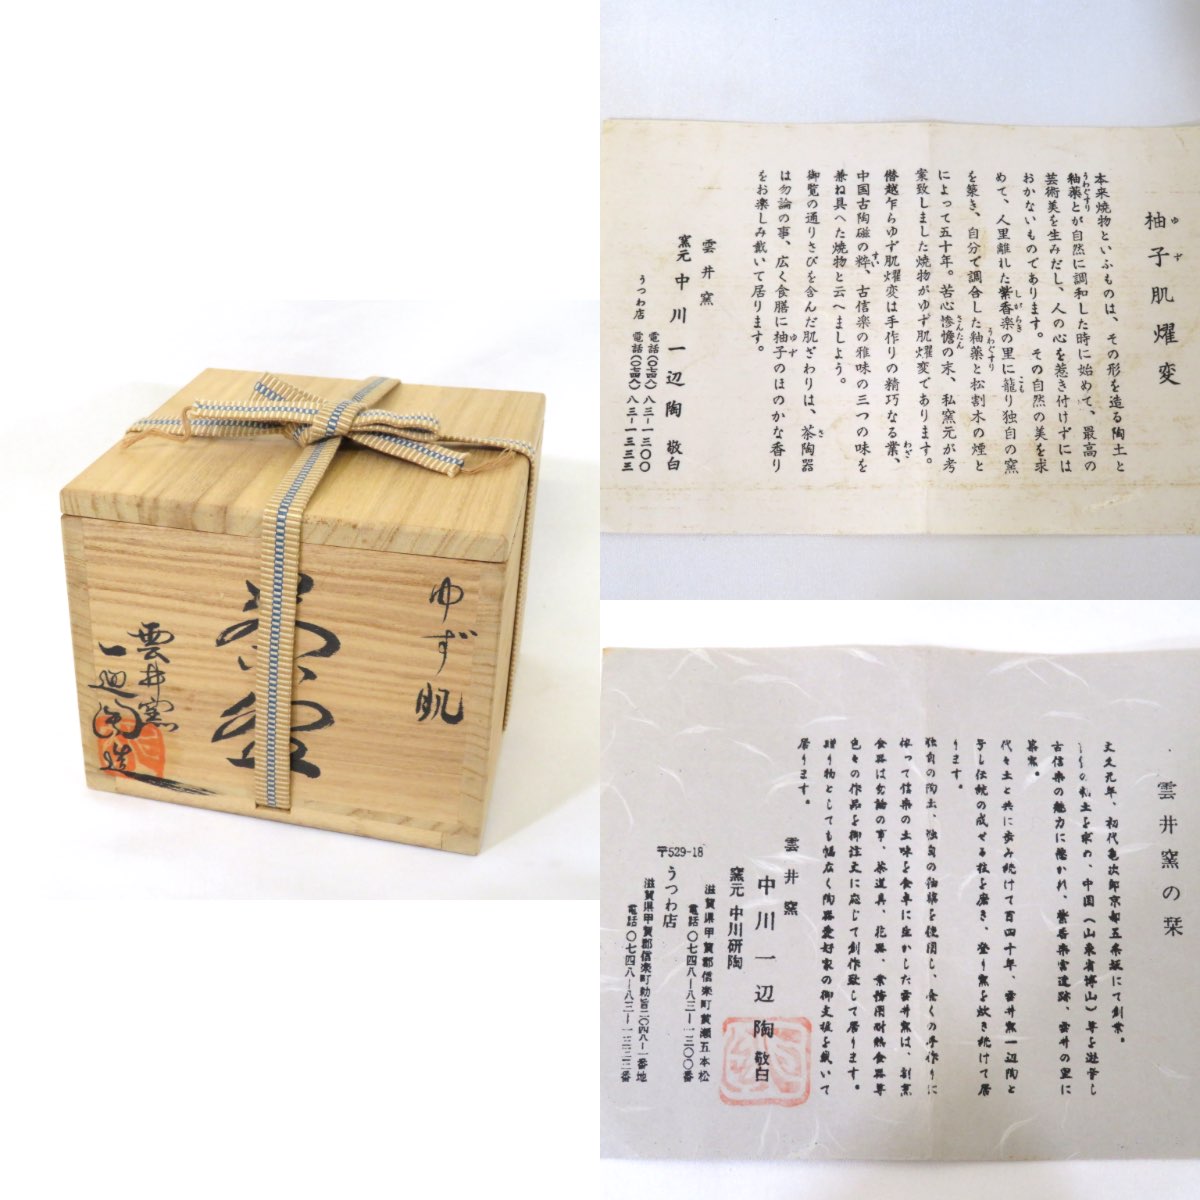 ゆず肌
茶壺
雲井窯
一辺陶造
柚子肌燿変
ゆず
本来焼物といふものは、その形を造る陶土と
釉薬とが自然に調和した時に始めて、最高の
うわぐすり
芸術美を生みだし、人の心を惹き付けずには
おかないものであります。その自然の美を求
めて、人里離れた紫香楽の里に籠り独自の窯
しがらき
こも
を築き、自分で調合した釉薬と松割木の煙と
うわぐすり
によって五十年。苦心惨憺の末、私窯元が考
さんたん
案致しました焼物がゆず肌燿変であります。
僭越乍らゆず肌燿変は手作りの精巧なる業、
わざ
中国古陶磁の粋、古信楽の雅味の三つの味を
すい
兼ね具へた焼物と云へましよう。
御覧の通りさびを含んだ肌ざわりは、茶陶器
さ
は勿論の事、広く食膳に柚子のほのかな香り
ゆず
をお楽しみ戴いて居ります。
雲井窯
窯元 中川一辺陶 敬白
電話(〇七四八)八三-一三〇〇
うつわ店 電話(〇七四八)八三-一三三三
雲井窯の栞
文久元年、初代亀次郎京都五条坂にて創業。
の粘土を求め、中国(山東省博山)等を遊学し
古信楽の魅力に惹かれ、紫香楽宮遺跡、雲井の里に
築窯。
代々土と共に歩み続けて百四十年、雲井窯一辺陶と
号し伝統の成せる技を磨き、登り窯を炊き続けて居
ります。
独自の陶土、独自の釉薬を使用し、全くの手作りに
依って信楽の土味を食卓に生かした雲井窯は、割烹
食器は勿論の事、茶道具、花器、業務用耐熱食器等
色々の作品を御注文に応じて創作致して居ります。
贈り物としても幅広く陶器愛好家の御支援を戴いて
居ります。
雲井窯
中川一辺陶 敬白
窯元 中川研陶
滋賀県甲賀郡信楽町黄瀬五本松
電話〇七四八-八三-一三〇〇番
〒529-18
うつわ店
滋賀県甲賀郡信楽町勅旨二〇四八-一番地
電話〇七四八-八三-一三三三番